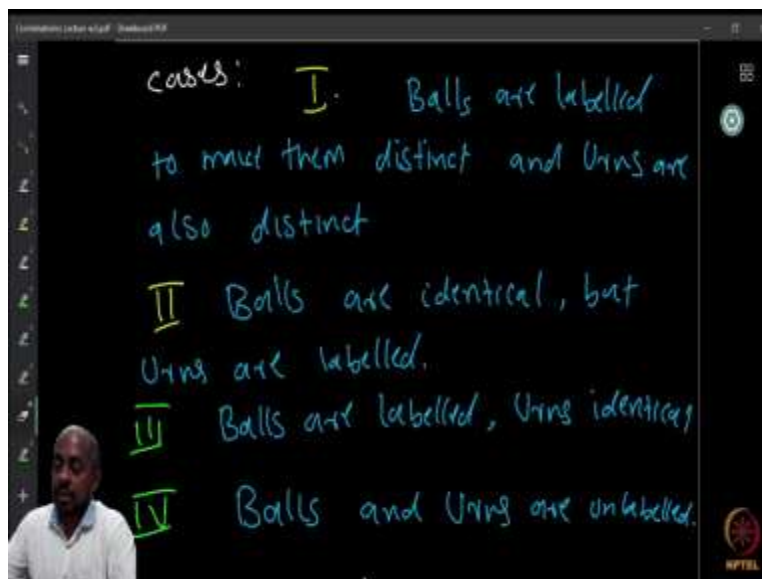 Cases: I. Balls are labelled
to make them distinct and Urns are
also distinct
II Balls are identical, but
Urns are labelled.
III Balls are labelled, Urns identical
IV Balls and Urns are unlabelled.
NPTEL